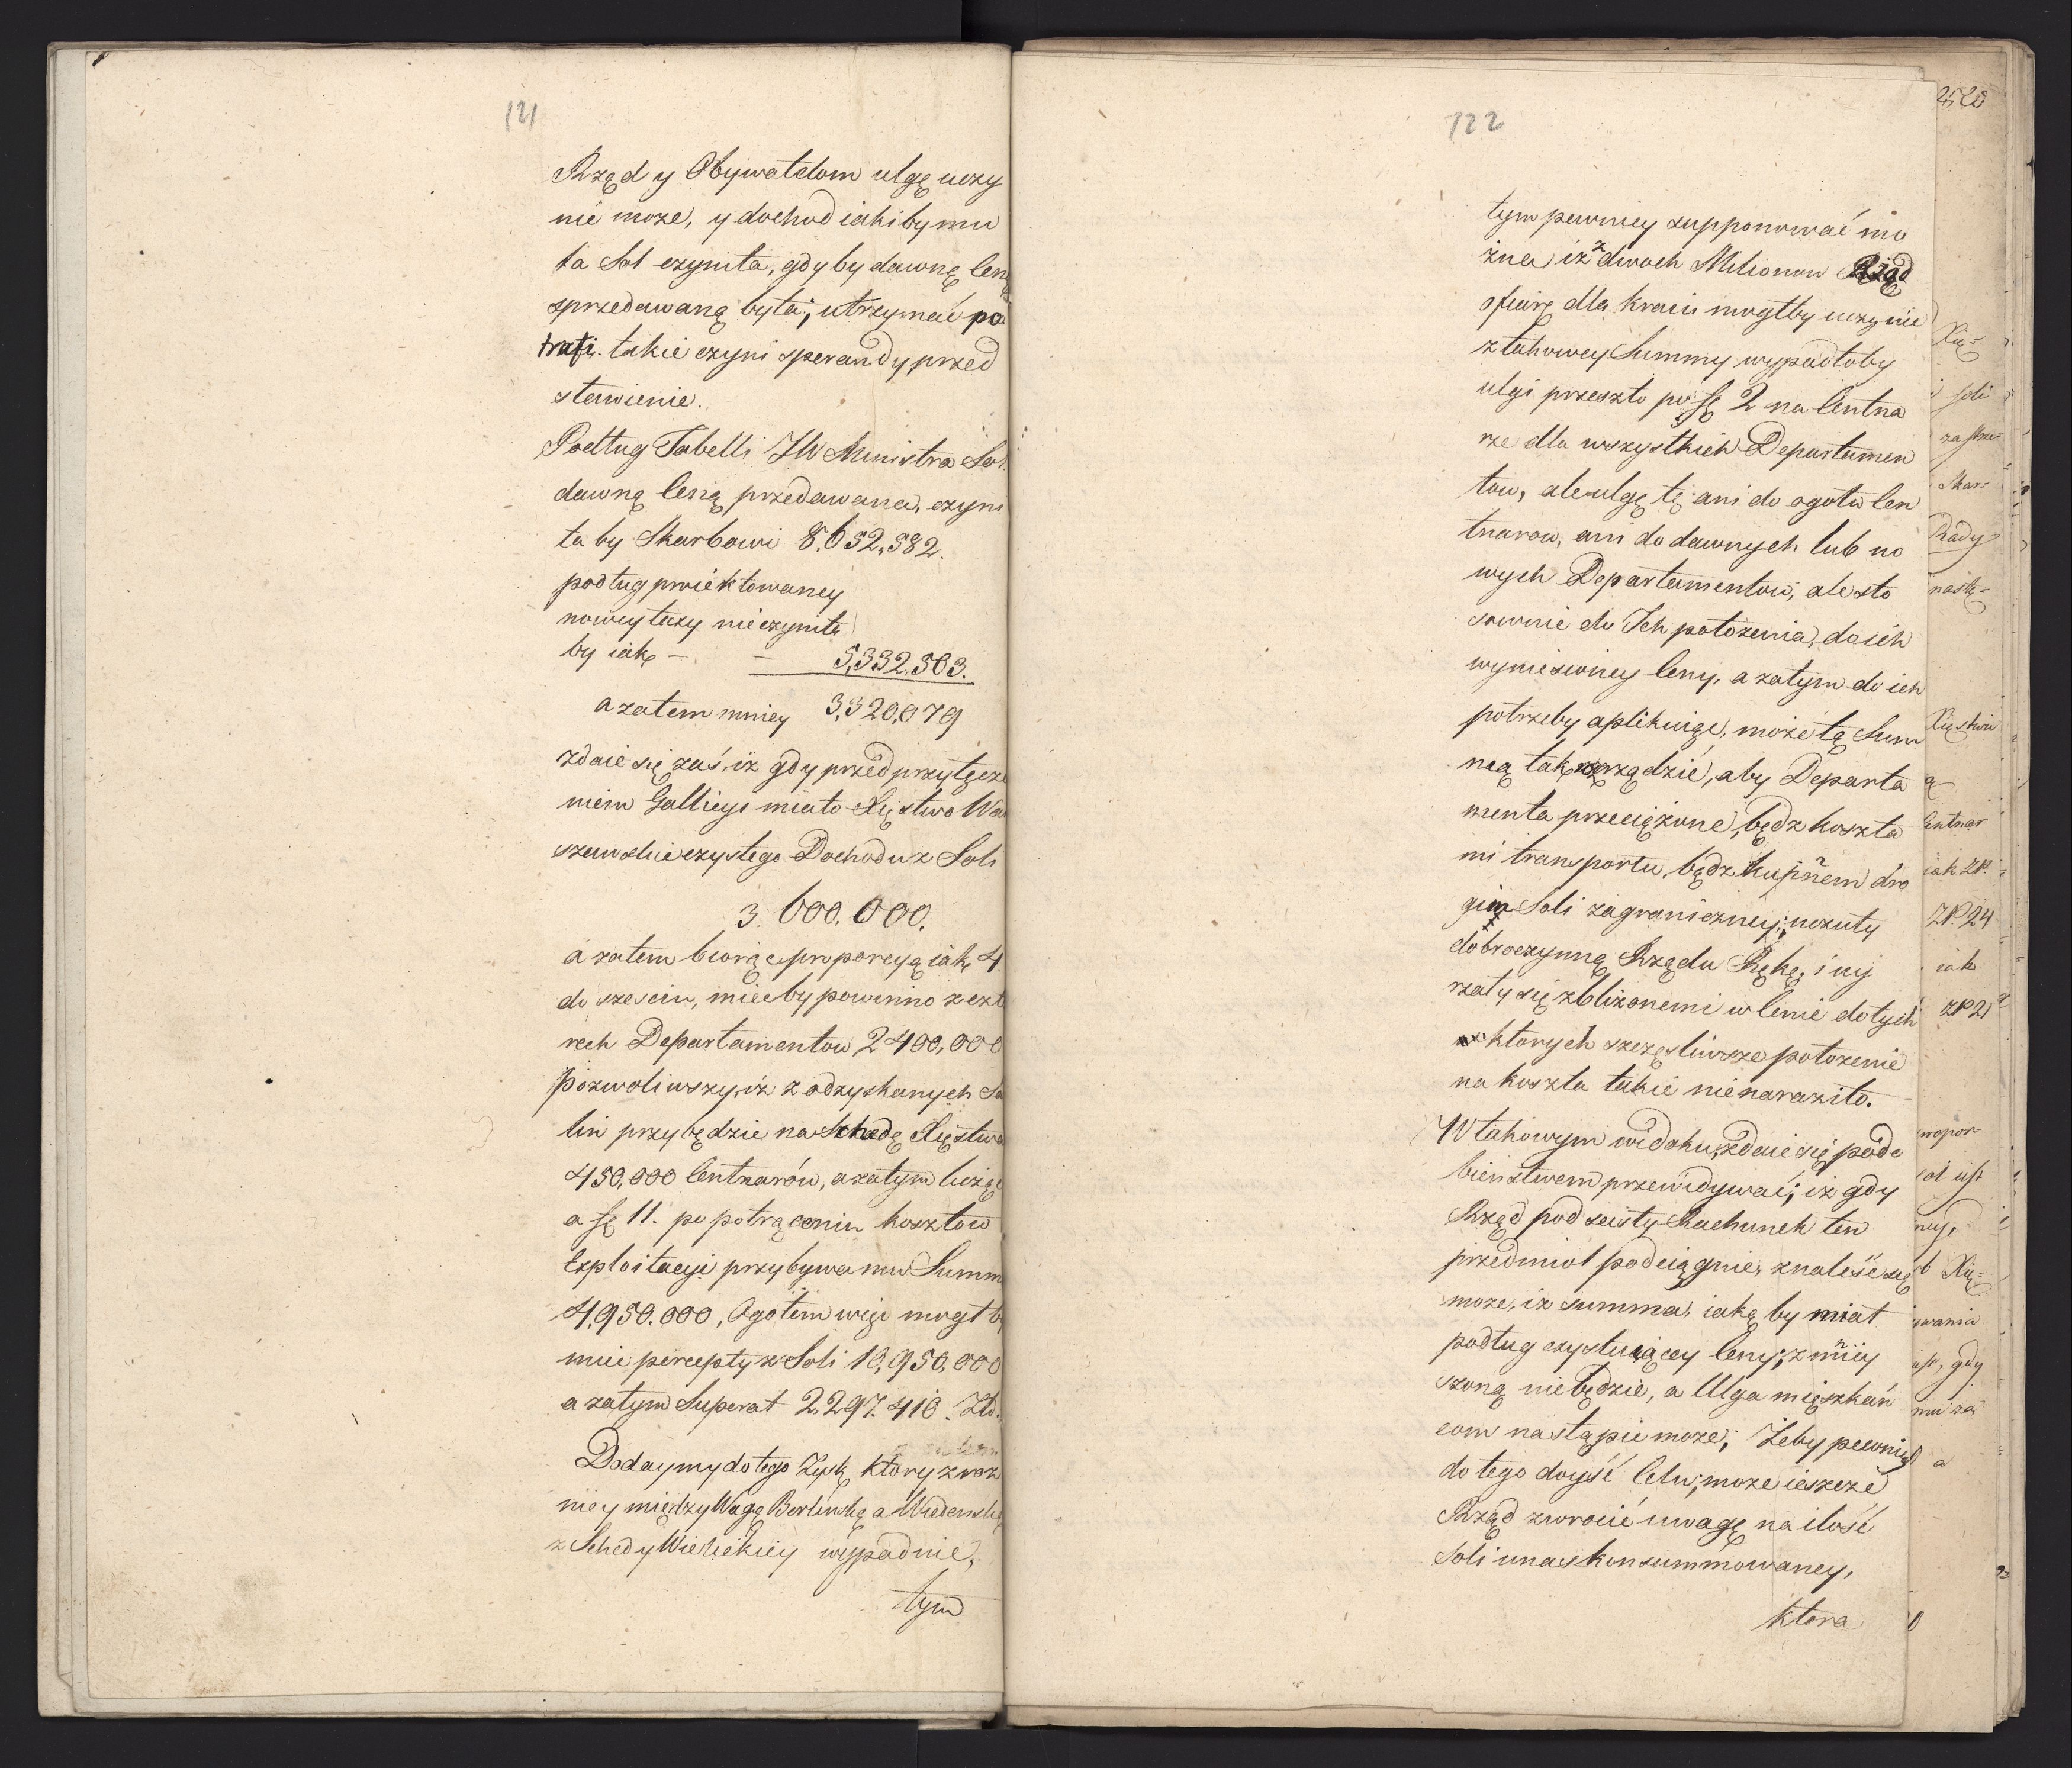 121
Rząd y Obywatelom ulgę uczy
nić może, y dochod iakiby mu
ta Sol czyniła, gdyby dawną Cen
sprzedawaną była; utrzymać po
trafi. takie czyni sperandy przed
stawienie.
Podług Tabelli JW Ministra Sol
dawną Ceną przedawana, czyni
ła by Skarbowi 8,652,582.
podług proiektowaney
nowey taxy nieczyniła
by iak – – 5,332,503.
a zatem mniey 3,320,079
zdaie się zaś, iz gdy przed przyłącze
niem Gallicyi miało Xięstwo War
szawskie czystego Dochodu z Soli
3.600.000.
a zatem biorąc proporcyą iak 4
do szesciu, mieć by powinno z czt
rech Departamentow 2400,000
pozwoliwszy, iz z odzyskanych Sa
lin przybędzie na Schedę Xięstwa
450,000 Centnarów, a zatym licząc
a fl 11. po potrąceniu kosztow
Exploitacyi przybywa mu Summ
4,950.000, Ogołem więc mogł by
mieć percepty z Soli 10,950,000
a zatym Superat 2,297.418. Zł.
Dodaymy do tego Zysk ktory z roz
nicy między Wagą Berlinską a Wiedenską
z Schedy Wielickiey wypadnie,
tym
122
tym pewniey supponować mo
żna iż z dwoch Milionow Rząd
ofiarę dla kraiu mogłby uczynić
z takowey Summy wypadłoby
ulgi przeszło po fl 2 na Centna
rze dla wszystkich Departamen
tow, ale ulgę tę ani do ogołu Cen
tnarow, ani do dawnych lub no
wych Departamentow, ale sto
sownie do Ich położenia, do ich
wyniesioney Ceny, a zatym do ich
potrzeby aplikuiąc, może tą Sum
mą tak rządzić, aby Departa
menta przeciążone, bądz koszta
mi transportu, bądz kupnem dro
giey Soli zagraniczney; uczuły
dobroczynną Rządu Rękę, i uy
rzały się zbliżonemi w Cenie do tych
ktorych szczęśliwsze położenie
na koszta takie nienaraziło.
W takowym widoku, zdaie się podo
bienstwem przewidywać; iż gdy
Rząd pod scisły Rachunek ten
przedmiot podciągnie, znaleść się
może, iz summa, iaką by miał
podług exystuiącey Ceny; zmniey
szoną niebędzie, a Ulga mięszkań
com nastąpić może; Żeby pewniey
do tego doyść Celu; może ieszcze
Rząd zwrocić uwagę na ilość
Soli u nas konsummowaney,
ktora
Xię=
soli
Skar=
Rady
nastę=
Xięstwu
ą
Centnar
iak ZP.
ZP 24
iak
ZP 21
propor=
ney,
b Xię=
ywania
gdy
a